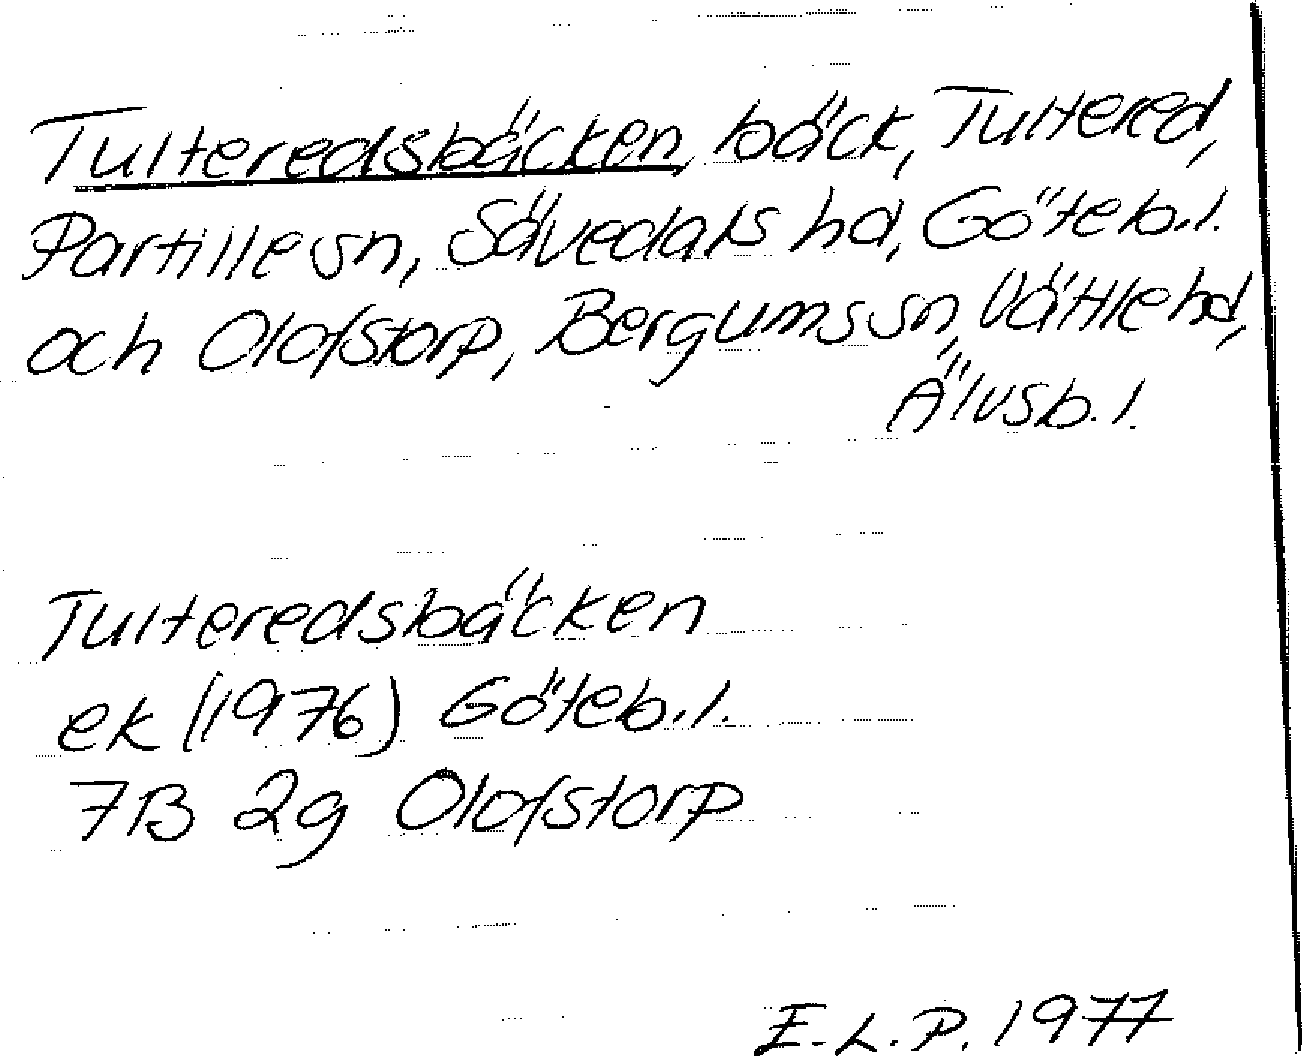 Tulteredsbäcken, bäck, Tultered,
Partille sn, Sävedals hd, Göteb.l.
och Olofstorp, Bergums sn, Vättle hd,
Älvsb.l.
Tulteredsbäcken
ek (1976) Göteb.l.
7B 2g Olofstorp
E.L.P. 1977